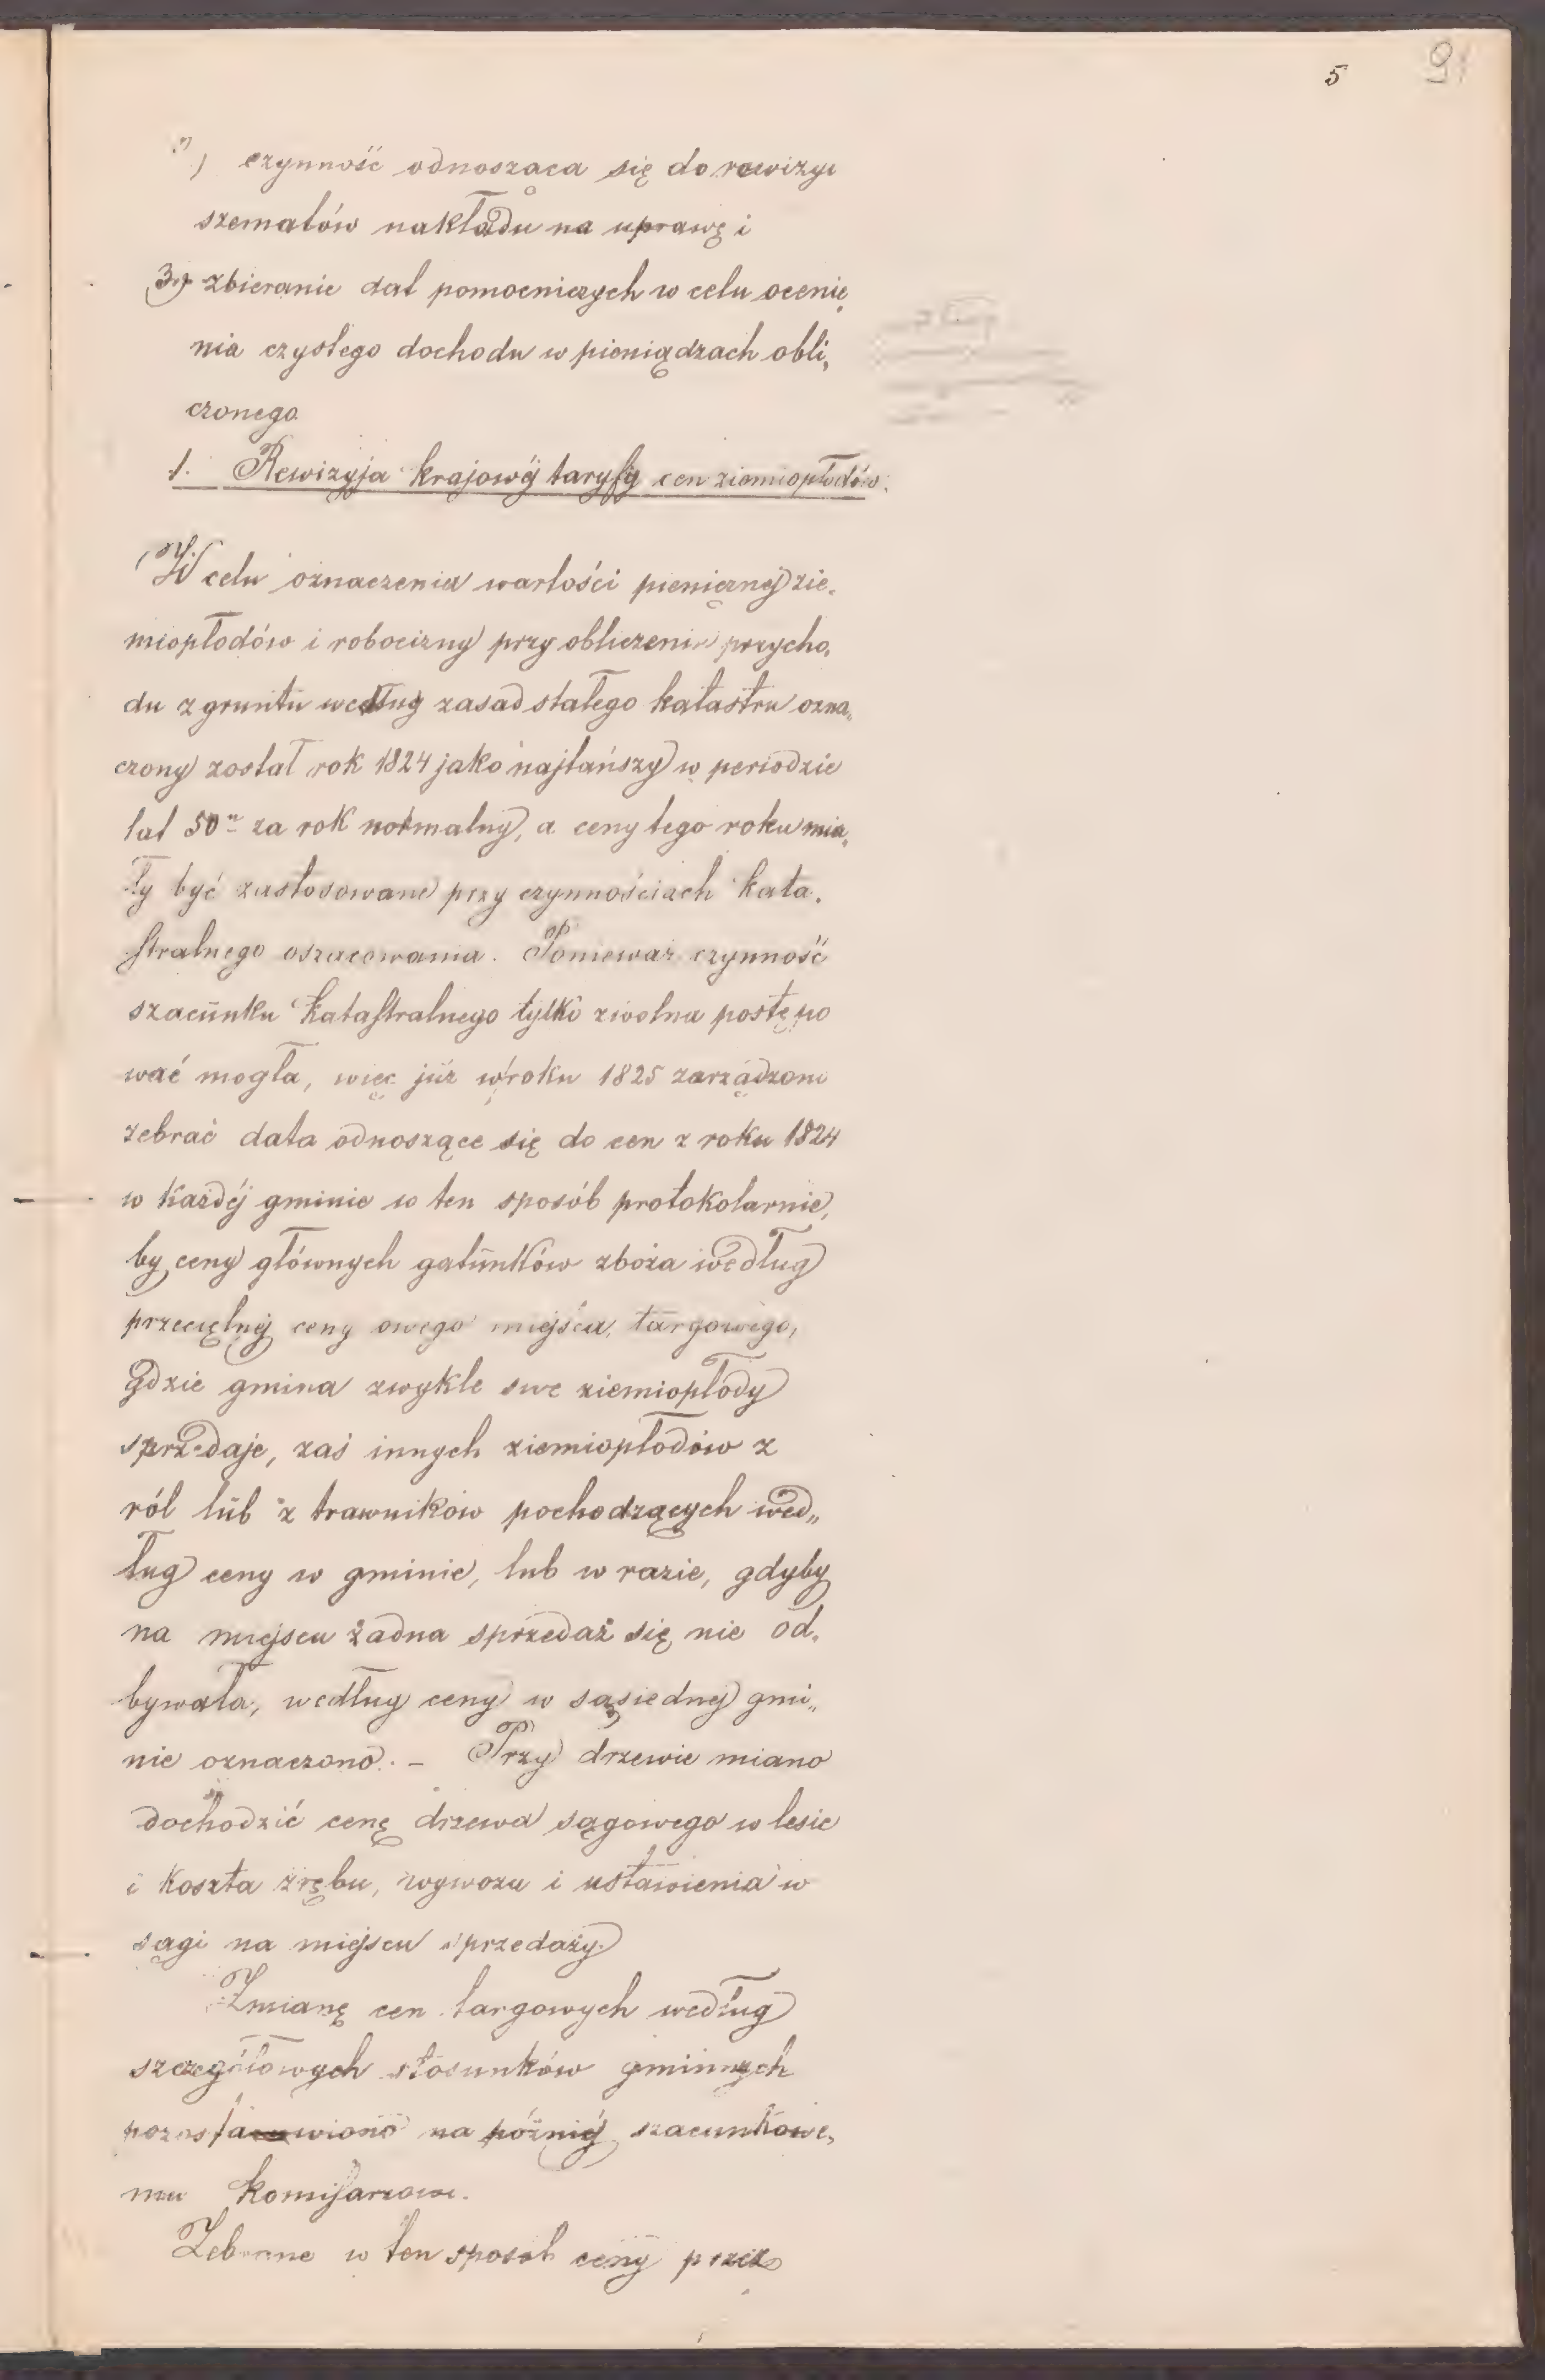 5 91
") czynność odnosząca się do rewizyi
szematów nakładu na uprawę i
3) zbieranie dat pomocniczych w celu ocenie„
nia czystego dochodu w pieniądzach obli„
czonego.
1. Rewizyja krajowéj taryfy cen ziemiopłodów.
W celu oznaczenia wartości pieniężnej zie„
miopłodów i robocizny przy obliczeniu przycho„
du z gruntu według zasad stałego katastru ozna„
czony został rok 1824 jako najtańszy w periodzie
lat 50 za rok normalny, a ceny tego roku mia„
ły być zastosowane przy czynnościach kata„
stralnego oszacowania. Ponieważ czynność
szacunku katastralnego tylko zwolna postępo
wać mogła, więc już w roku 1825 zarządzono
zebrać data odnoszące się do cen z roku 1824
w każdéj gminie w ten sposób protokolarnie,
by ceny głównych gatunków zboża według
przeciętnéj ceny owego miejsca targowego,
gdzie gmina zwykle swe ziemiopłody
sprzedaje, zaś innych ziemiopłodów z
ról lub z trawników pochodzących wed„
ług ceny w gminie, lub w razie, gdyby
na miejscu żadna sprzedaż się nie od„
bywała, według ceny w sąsiednej gmi„
nie oznaczono. – Przy drzewie miano
dochodzić cenę drzewa sągowego w lesie
i koszta zrębu, wywozu i ustawienia w
sągi na miejscu sprzedaży.
Zmianę cen targowych według
szczegółowych stosunków gminnych
pozostawiono na późniéj szacunkowe„
mu komisarzowi.
Zebrane w ten sposób ceny przez